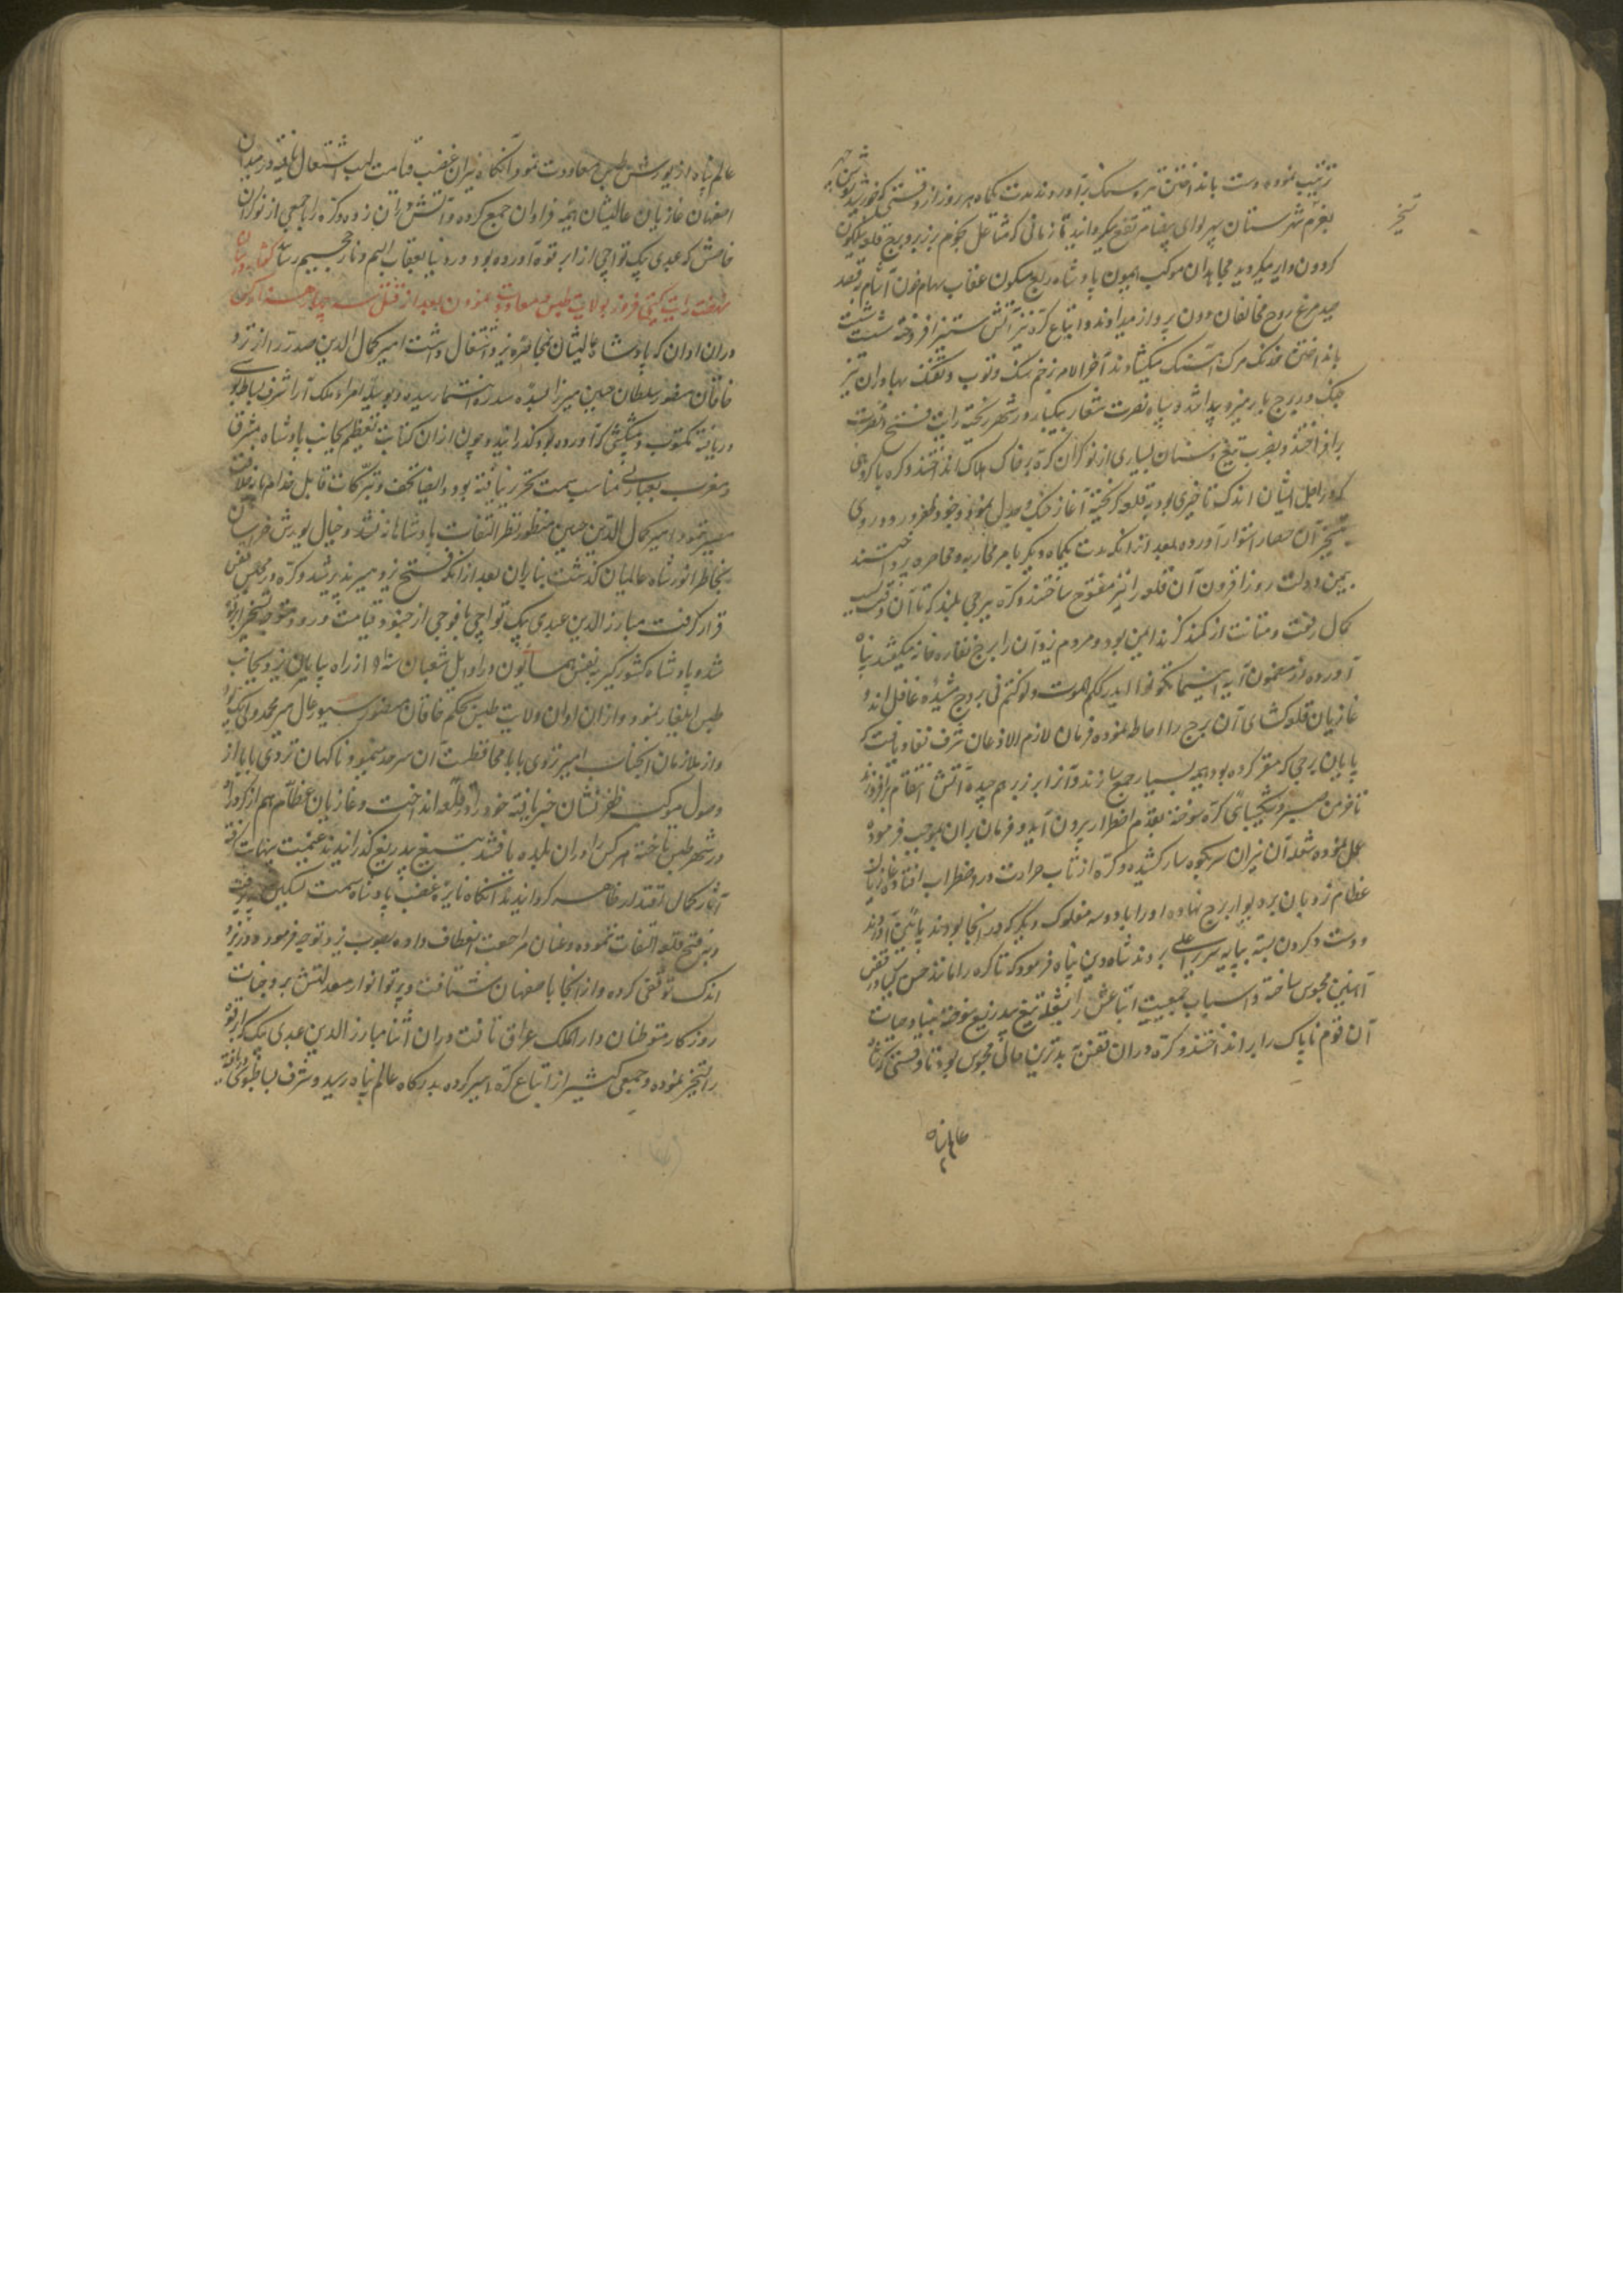 ترتیب نموده دست بانداختن تیر و سنک برآوردند مدت یکماه هر روز از وقتی که خورشید
بعزم شهرستان سپهر لوای بیضا مرتفع میکردانید تا زمانی که مشاعل نجوم بر زبر بروج قلعه نیلکون
تسخیر
کردون دایر میکردید مجاهدان موکب همیون پادشاه ربع مسکون عقاب سهام خون آشام بقصد
صید مرغ روح مخالفان دون پرواز میدادند و اتباع کره نیز آتش ستیز افروخته شست
بانداختن خدنک مرک آهنک میکشادند آخرالامر بزخم سنک و توپ و تفنک بهادران تیز
جنک در بروج باره رخنه پیدا شد و سپاه نصرت شعار بیکبار در شهر ریخته رایت فتح و نصرت
برافراختند و بضرب تیغ و سنان بسیاری از نوکران کره بر خاک هلاک انداختند و کره با کروهی
که در اجل ایشان اندک تاخیری بود بقلعه کریخته آغاز جنک و جدل نمود و جنود ظفر ورود روی
بتسخیر آن حصار استوار آورده بعد از آنکه مدت یکماه دیکر بامر محاربه و محاصره پرداختند
بیمن دولت روزافزون آن قلعه را نیز مفتوح ساختند و کره ببرجی بلند که تا آن وقت بسبب
کمال رفعت و متانت از کمند کزند ایمن بود و مردم یزد آن را برج نقاره خانه میکفتند پناه
آورده از مضمون آیه اینما تکونوا یدرککم الموت ولو کنتم فی بروج مشیده غافل ماند و
غازیان قلعه کشای آن برج را احاطه نموده فرمان لازم الاذعان شرف نفاذ یافت که
پایان برجی که مقر کرده بود هیمه بسیار جمع سازند و آنرا بر زبر هم چیده آتش انتقام برافروزند
تا خرمن صبر و شکیبایی کره سوخته بقدم اضطرار بیرون آید و فرمان بران بموجب فرموده
عمل نموده شعله آن نیران سر بکوه سار کشیده و کره از تاب حرارت در اضطراب افتاد و غازیان
عظام نردبان بر دیوار برج نهاده او را با دو سه مفلوک دیکر که در آنجا بودند پایین آوردند
و دست و کردن بسته بپایه سریر اعلی بردند شاه دین پناه فرمود که تا کره را مانند حسین کیا در قفس
آهنین محبوس ساخته و اسباب جمعیت اتباعش را بشعله تیغ بیدریغ سوخته بنیاد حیات
آن قوم ناپاک را برانداختند و کره در آن قفس به بدترین حالی محبوس بود تا وقتی که شاه
عالم پناه
عالم پناه از یورش طبس معاودت نمود آنکاه نیران غضب قیامت لهب اشتعال یافته در میدان
اصفهان غازیان عالیشان هیمه فراوان جمع کرده و آتش در آن زده کره را با جمعی از نوکران
خاصش که عبدی بیک تواچی از ابرقوه آورده بود در دنیا بعقاب الیم و نار جحیم رسانیدند
نهضت رایت کیتی فروز بولایت طبس و معاودت نمودن بعد از قتل
در آن اوان که پادشاه عالیشان بمحاصره یزد اشتغال داشت امیر کمال الدین صدر از نزد
خاقان منصور سلطان حسین میرزا بسده سدره انتما رسیده و بوسیله امراء ملک آرا شرف بساط بوسی
دریافته مکتوب و پیشکشی که آورده بود کذرانید و چون در آن کتابت تعظیم جانب پادشاه مشرق
و مغرب بعبارتی مناسب سمت تحریر نیافته بود و ایضا تحف و تبرکات قابل خدام
نمینمود امیر کمال الدین حسین منظور نظر التفات پادشاهانه نشد و خیال یورش خراسان
بخاطر انور شاه عالمیان کذشت بنابران بعد از انکه فتح یزد میسر پذیر شد و کره در محبس قفس
قرار کرفت مبارز الدین عبدی بیک تواچی با فوجی از جنود قیامت ورود متوجه تسخیر ابرقوه
شد و پادشاه کشورکیر بنفس همایون در اوایل شعبان از راه بیابان یزد بجانب
طبس ایلغار نمود و در آن اوان ولایت طبس بحکم خاقان منصور سیورغال امیر محمد ولی بیک بود
و از ملازمان آنجناب امیر تردی بابا بمحافظت آن سرحد مینمود و ناکهان تردی بابا از
وصول موکب ظفر نشان خبر یافته خود را در قلعه انداخت و غازیان عظام هم از کرد راه
در شهر طبس تاخته هر کس را در آن بلده یافتند بتیغ بیدریغ کذرانیدند غنیمت بینهایت یافته
آثار کمال اقتدار ظاهر کردانیدند آنکاه نایره غضب پادشاه سمت تسکین پذیرفت
و بر فتح قلعه التفات ننموده و عنان مراجعت انعطاف داده بصوب یزد توجه فرموده و در یزد
اندک توقفی کرده و از آنجا باصفهان شتافت و پرتو انوار معدلتش بر وجنات
روزکار متوطنان دار الملک عراق تافت در آن اثنا مبارز الدین عبدی بیک که ابرقوه
را تسخیر نموده و جمعی کثیر از اتباع کره اسیر کرده بدرکاه عالم پناه رسید و شرف بساط بوسی دریافت